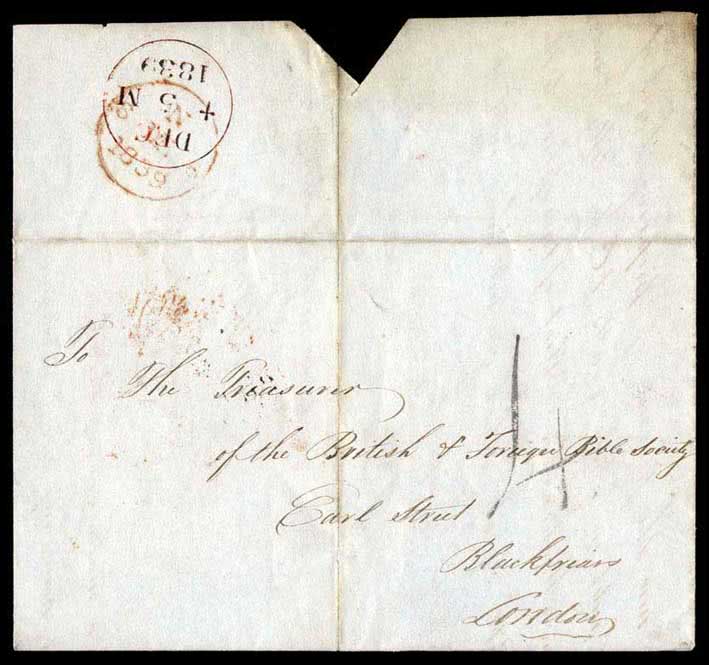 1839
5 M
+
DEC
To
The Treasurer
of the British & Foreign Bible Society
14
Earl Street
Blackfriars
London